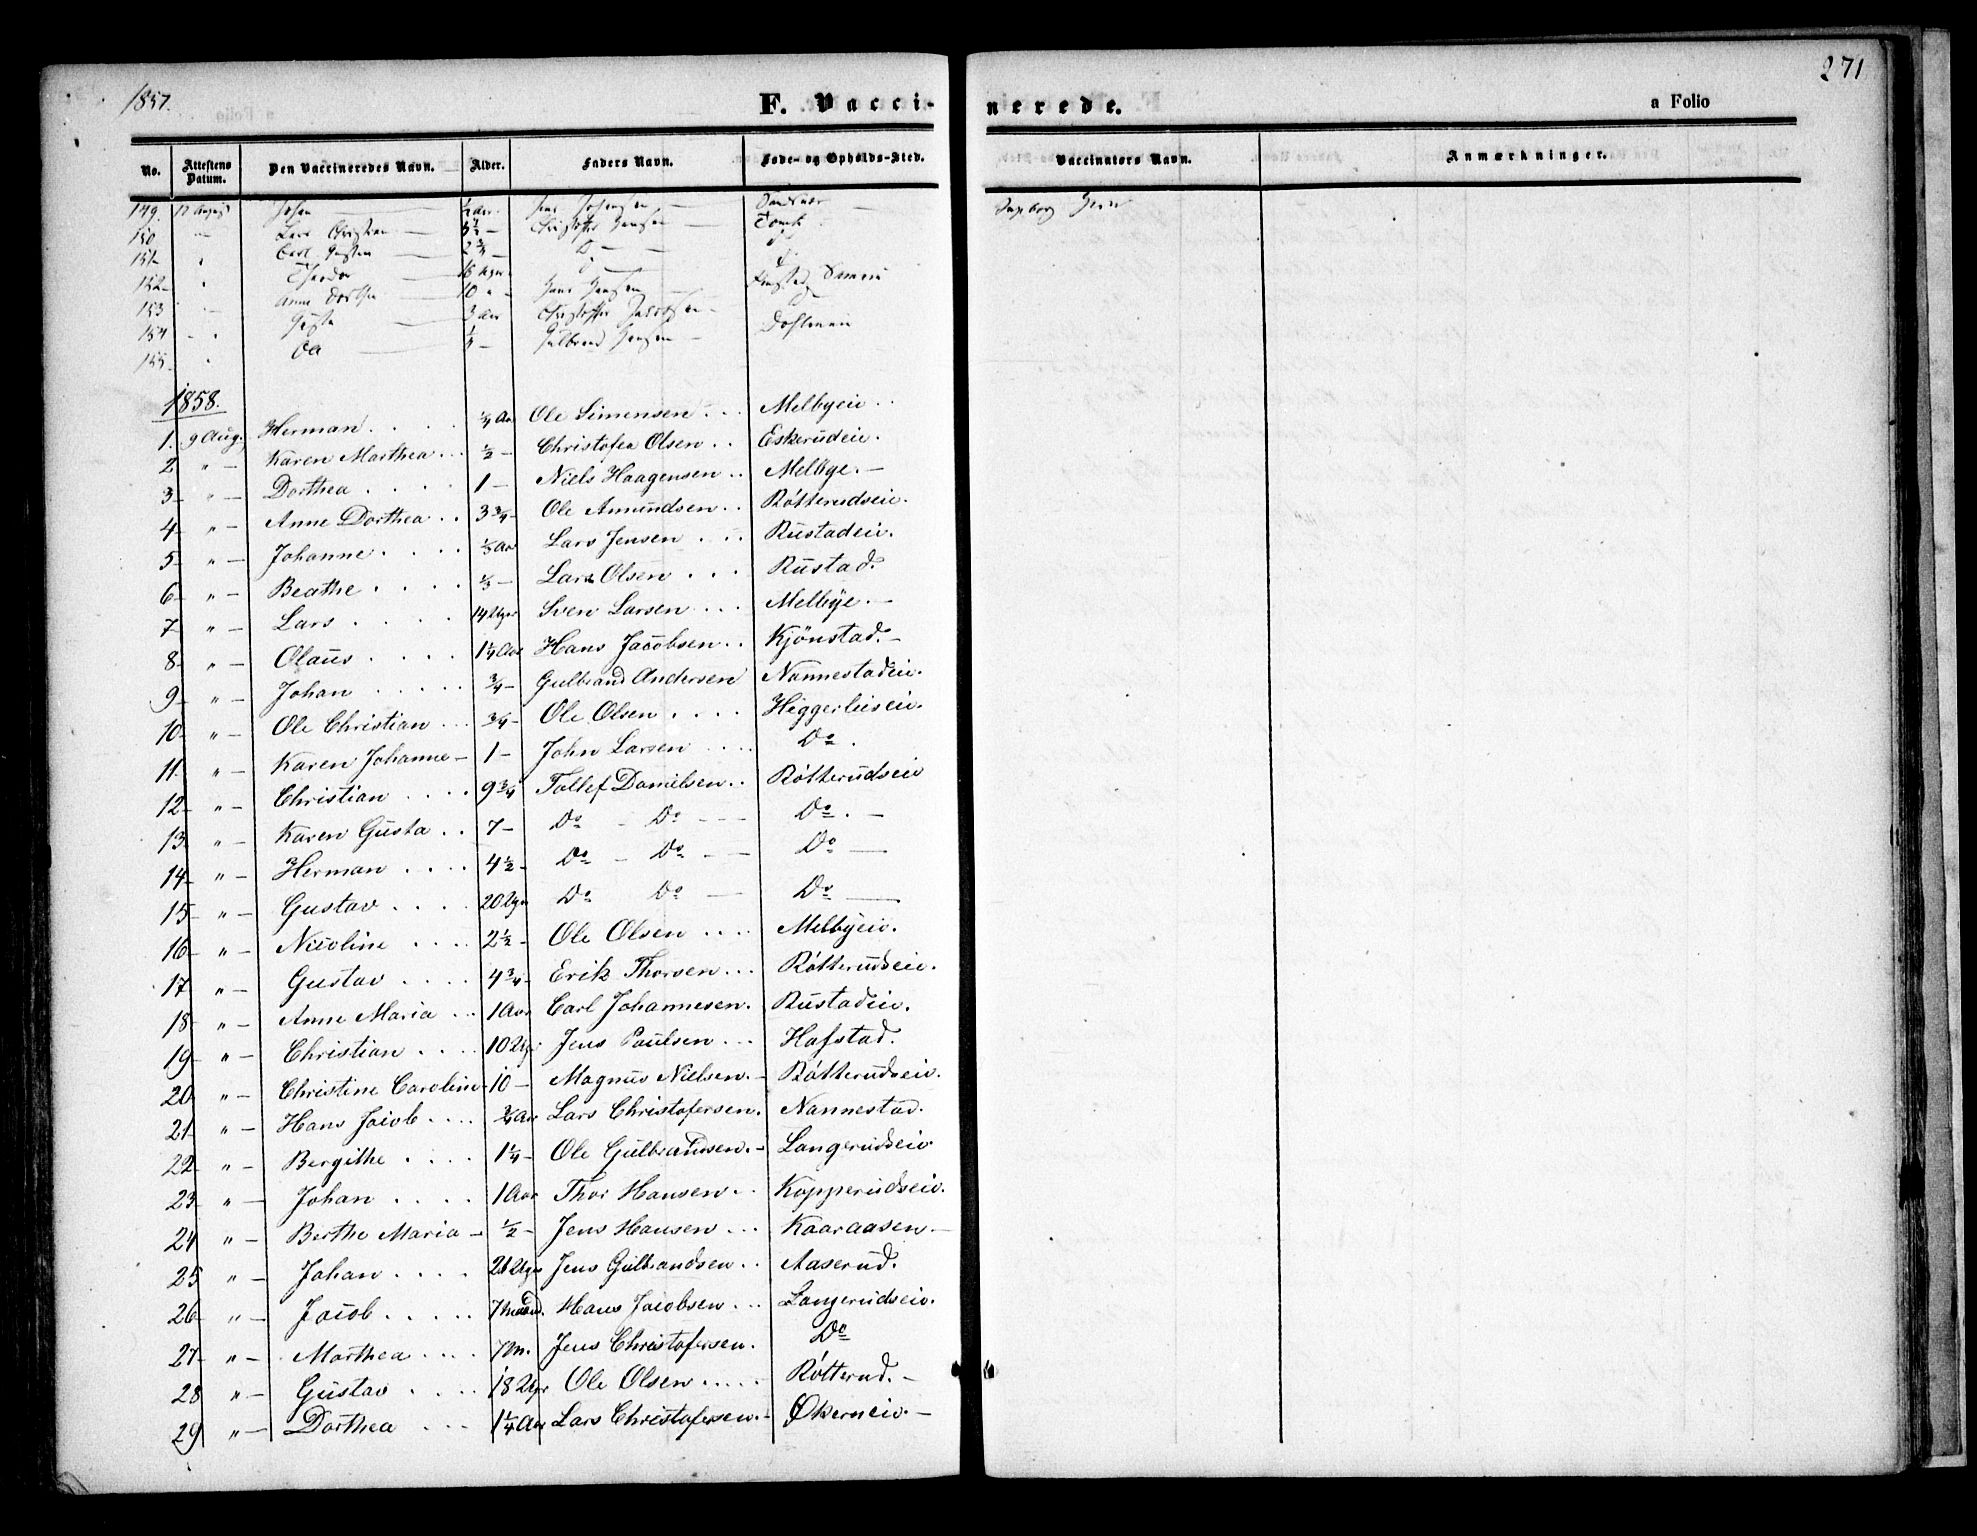 1857.
271
F. Vaccinerede.
a Folio
No. Attestens Datum. Den Vaccineredes Navn. Alder. Faders Navn. Føde- og Opholds-Sted. Vaccinators Navn. Anmærkninger.
149. 17 August Johan ½ Aar Jens Johansen Ingeborg
150 " Lars Christian 3½ Christoffer Hansen
151 " Carl Gusten 2¾ Do
152 " Theodor 16 Uger
153 " Anne Dorthea 10 " Hans Hansen
154 " Gusta 3 Aar Christoffer Jacobsen
155 " Gulbrand Hansen
1858.
1. 9 Aug. Herman ¼ Aar Ole Simensen Melbyeie
2 " Karen Marthea ½ Christofer Olsen Eskerudeie.
3 " Dorthea 1 Niels Haagensen Melbye.
4 " Anne Dorthea 3¾ Ole Amundsen Rótterudseie.
5 " Johanne ⅓ Aar Lars Jensen Rustadeie.
6 " Beathe ⅓ Lars Olsen Rustad.
7 " Lars 14 Uger Sven Larsen Melbye.
8 " Olaus 1¼ Aar Hans Jacobsen Kjönstad.
9 " Johan ¾ Gulbrand Andersen Nannestadeie.
10 " Ole Christian ¾ Ole Olsen
11. " Karen Johanne 1 John Larsen Do.
12 " Christian 9¾ Tollef Danielsen Rótterudseie
13 " Karen Gusta 7 Do Do Do.
14 " Herman 4½ Do Do Do
15 " Gustav 20 Uger Do Do Do
16 " Nicoline 2½ Ole Olsen Melbyeie.
17 " Gustav 4¾ Erik Thorsen Rótterudseie.
18 " Anne Maria 1 Aar Carl Johannesen. Rustadeie.
19 " Christian 10 Uger Jens Paulsen Hafstad.
20 " Christine Caroline 10 Magnus Nielsen. Rótterudseie.
21 " Hans Jacob ¾ Aar Lars Christofersen. Nannestad.
22 " Bergithe 1¼ Ole Gulbrandsen. Langerudseie.
23 " Johan 1 Aar Thor Hansen Kopperudseie.
24 " Berthe Maria ½ Jens Hansen Kaaraasen
25 " Johan 26 Uger Jens Gulbrandsen Aaserud.
26 " Jacob 7 Maad. Hans Jacobsen Langerudseie.
27 " Marthea 7 M. Jens Christofersen. Do
28 " Gustav 18 Uger Ole Olsen Rótterud.
29 " Dorthea 1¼ Aar Lars Christofersen. Økerneie.